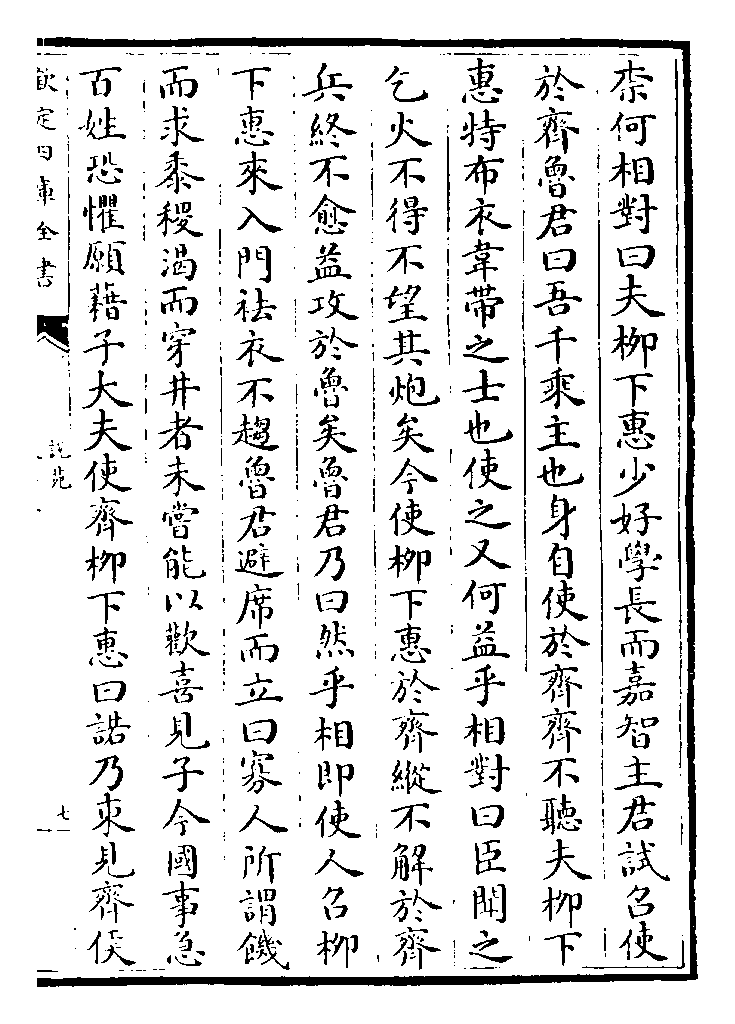 柰何相對曰夫柳下惠少好學長而嘉智主君試召使
於齊魯君曰吾千乘主也身自使於齊齊不聽夫柳下
惠特布衣韋帶之士也使之又何益乎相對曰臣聞之
乞火不得不望其炮矣今使柳下惠於齊縱不解於齊
兵終不愈益攻於魯矣魯君乃曰然乎相即使人召柳
下惠來入門袪衣不趨魯君避席而立曰寡人所謂饑
而求黍稷渴而穿井者未嘗能以歡喜見子今國事急
百姓恐懼願藉子大夫使齊柳下惠曰諾乃東見齊侯
欽定四庫全書
說苑
七